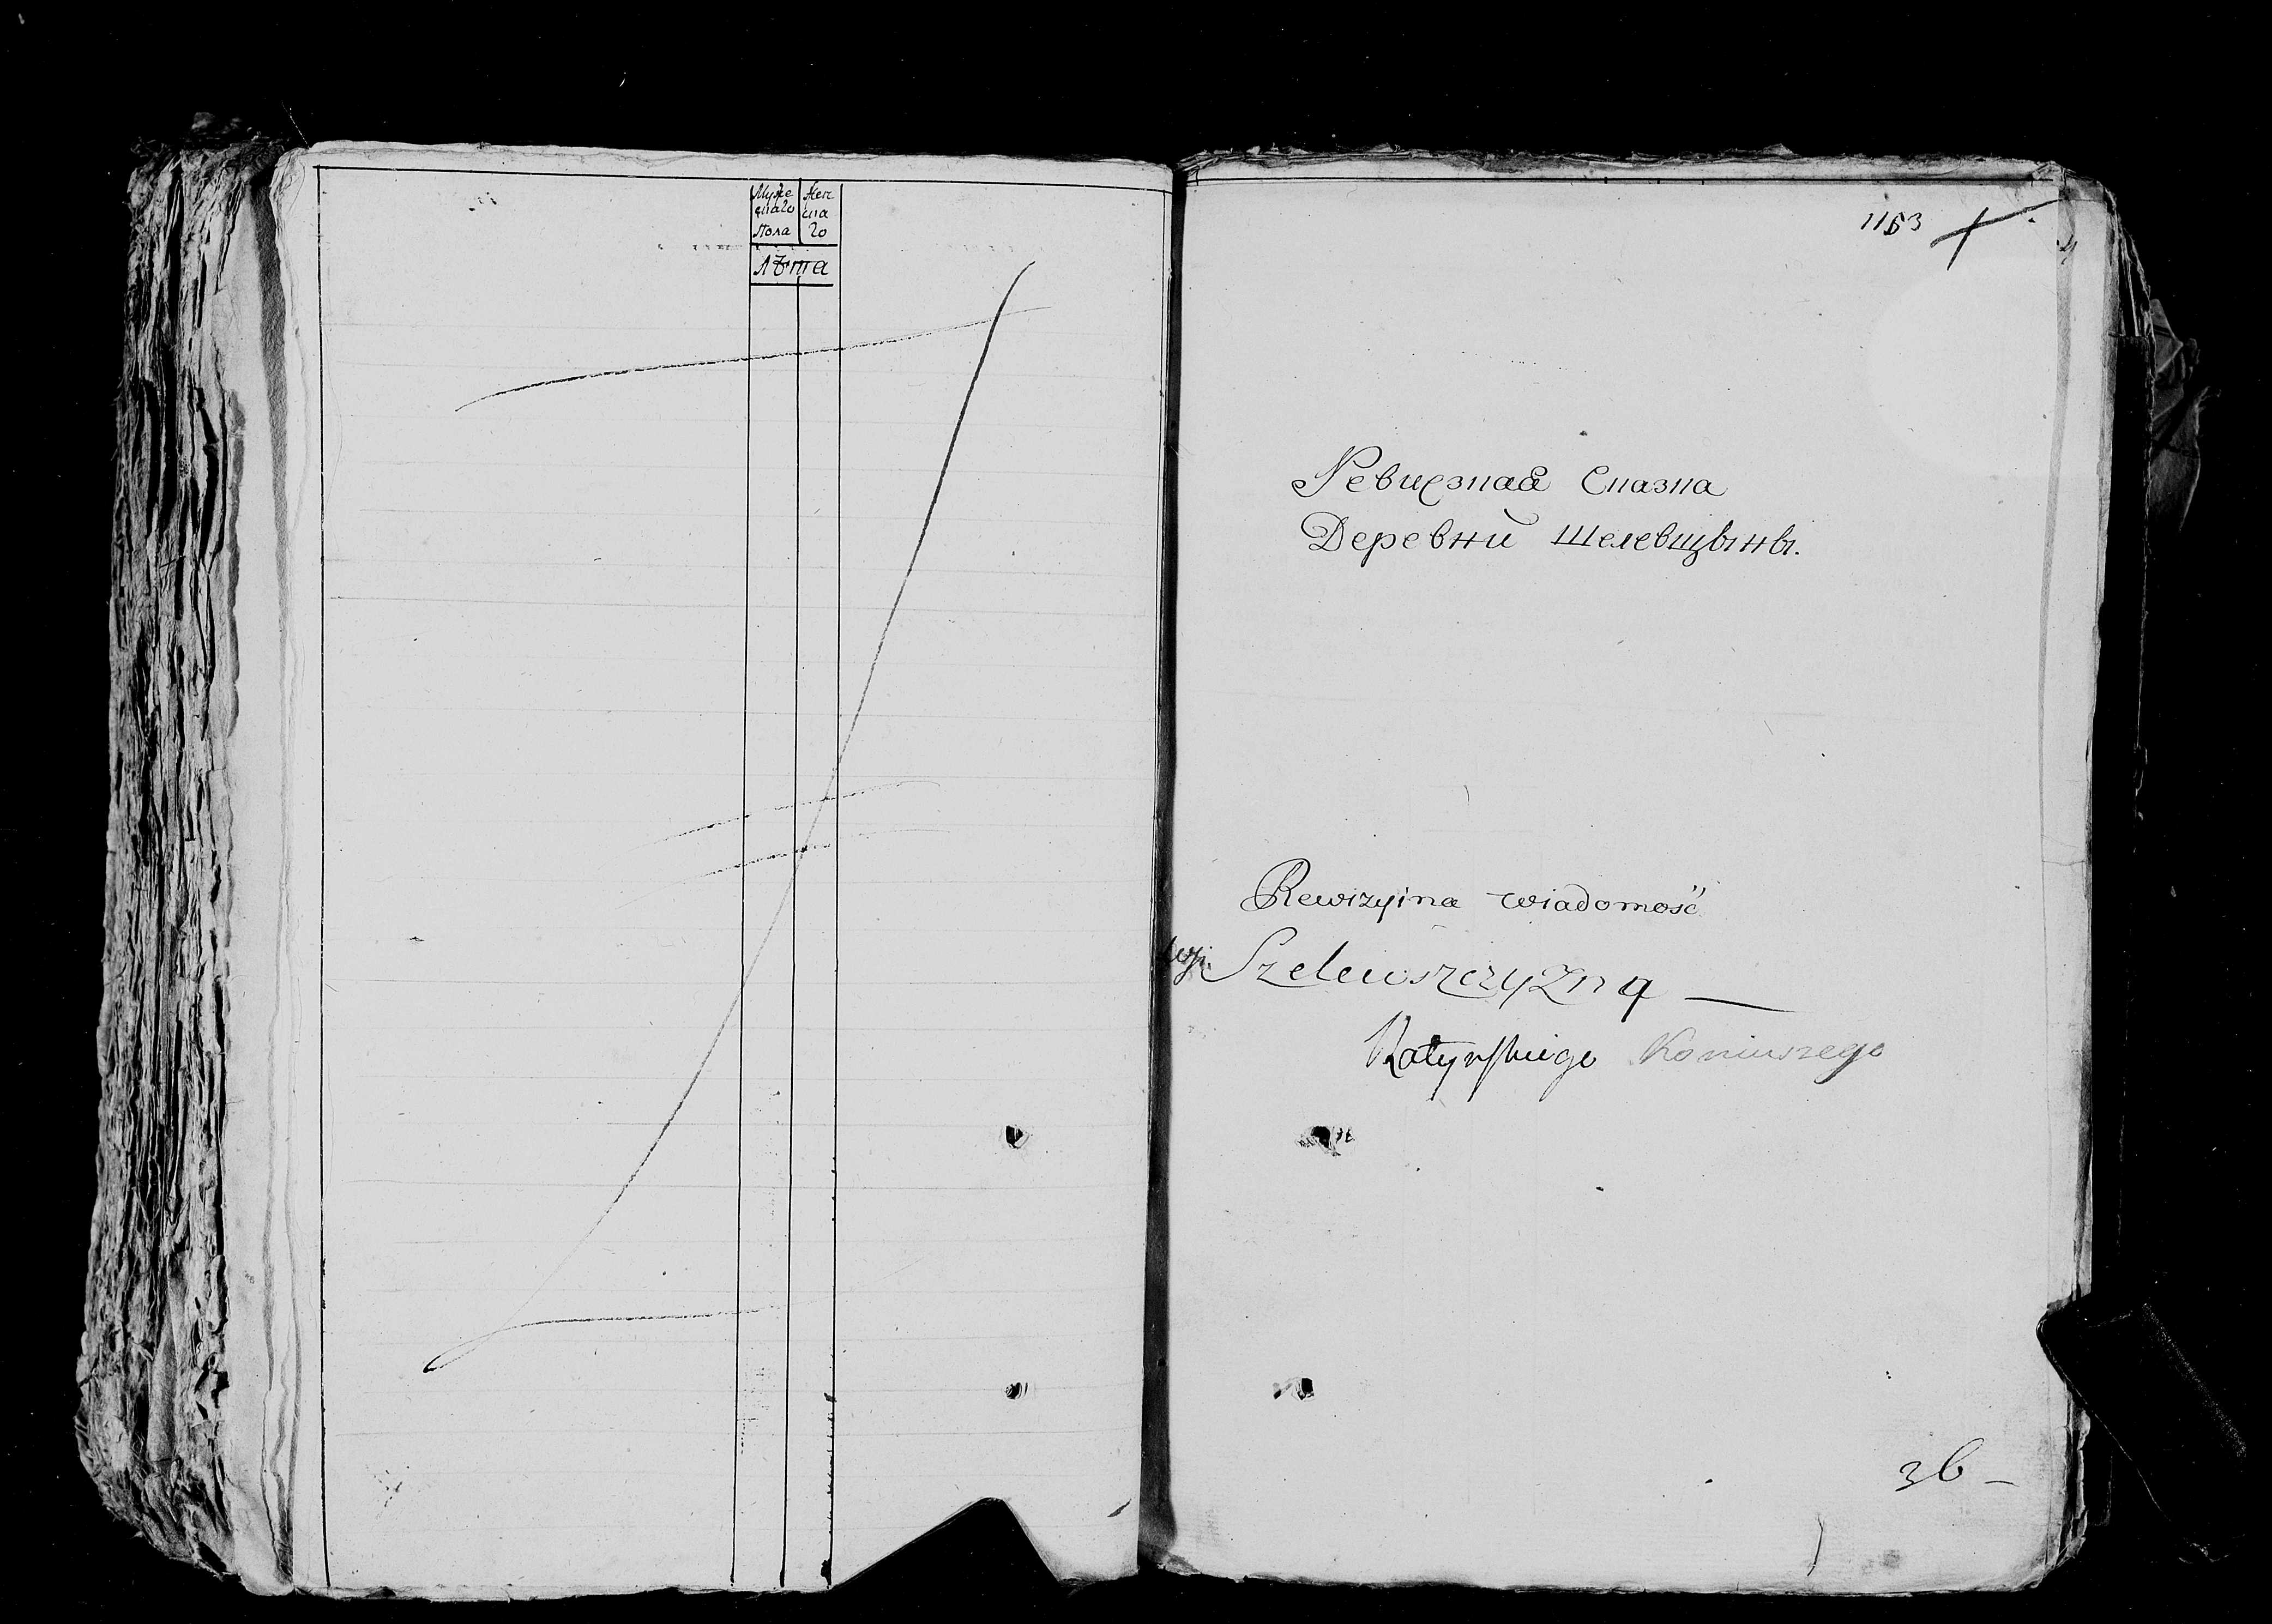 Муже Жен
скаго ска
Пола го
Лѣта
1153
Ревизская Сказка
Деревни Шелевщыны.
Rewizyina wiadomość
wsi Szelewszczyzną
Ratyńskiego Koniuszego
36